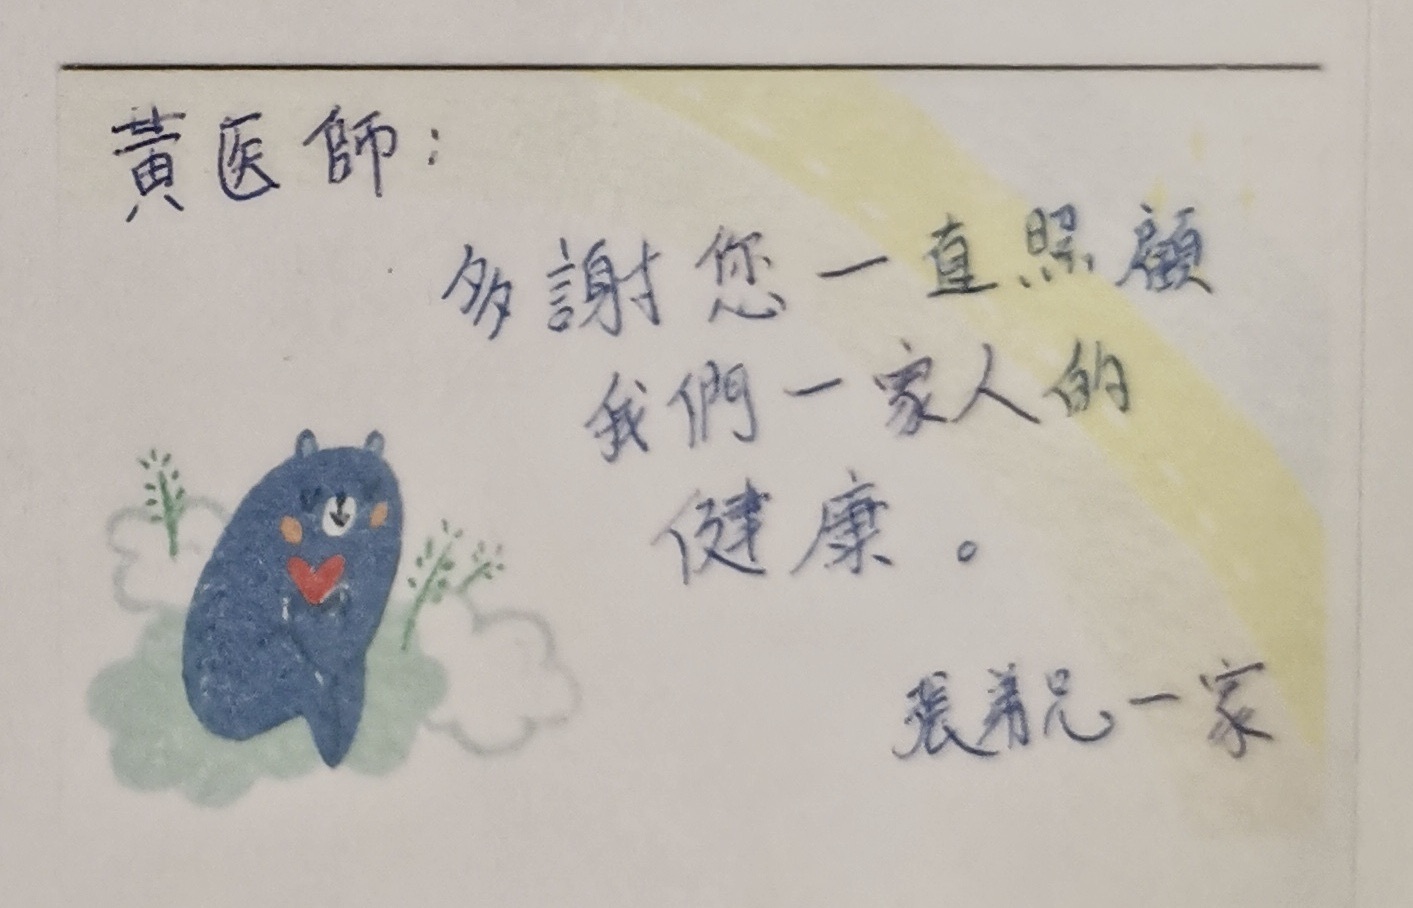 黃医師：
多謝您一直照顧
我們一家人的
健康。
張兄一家